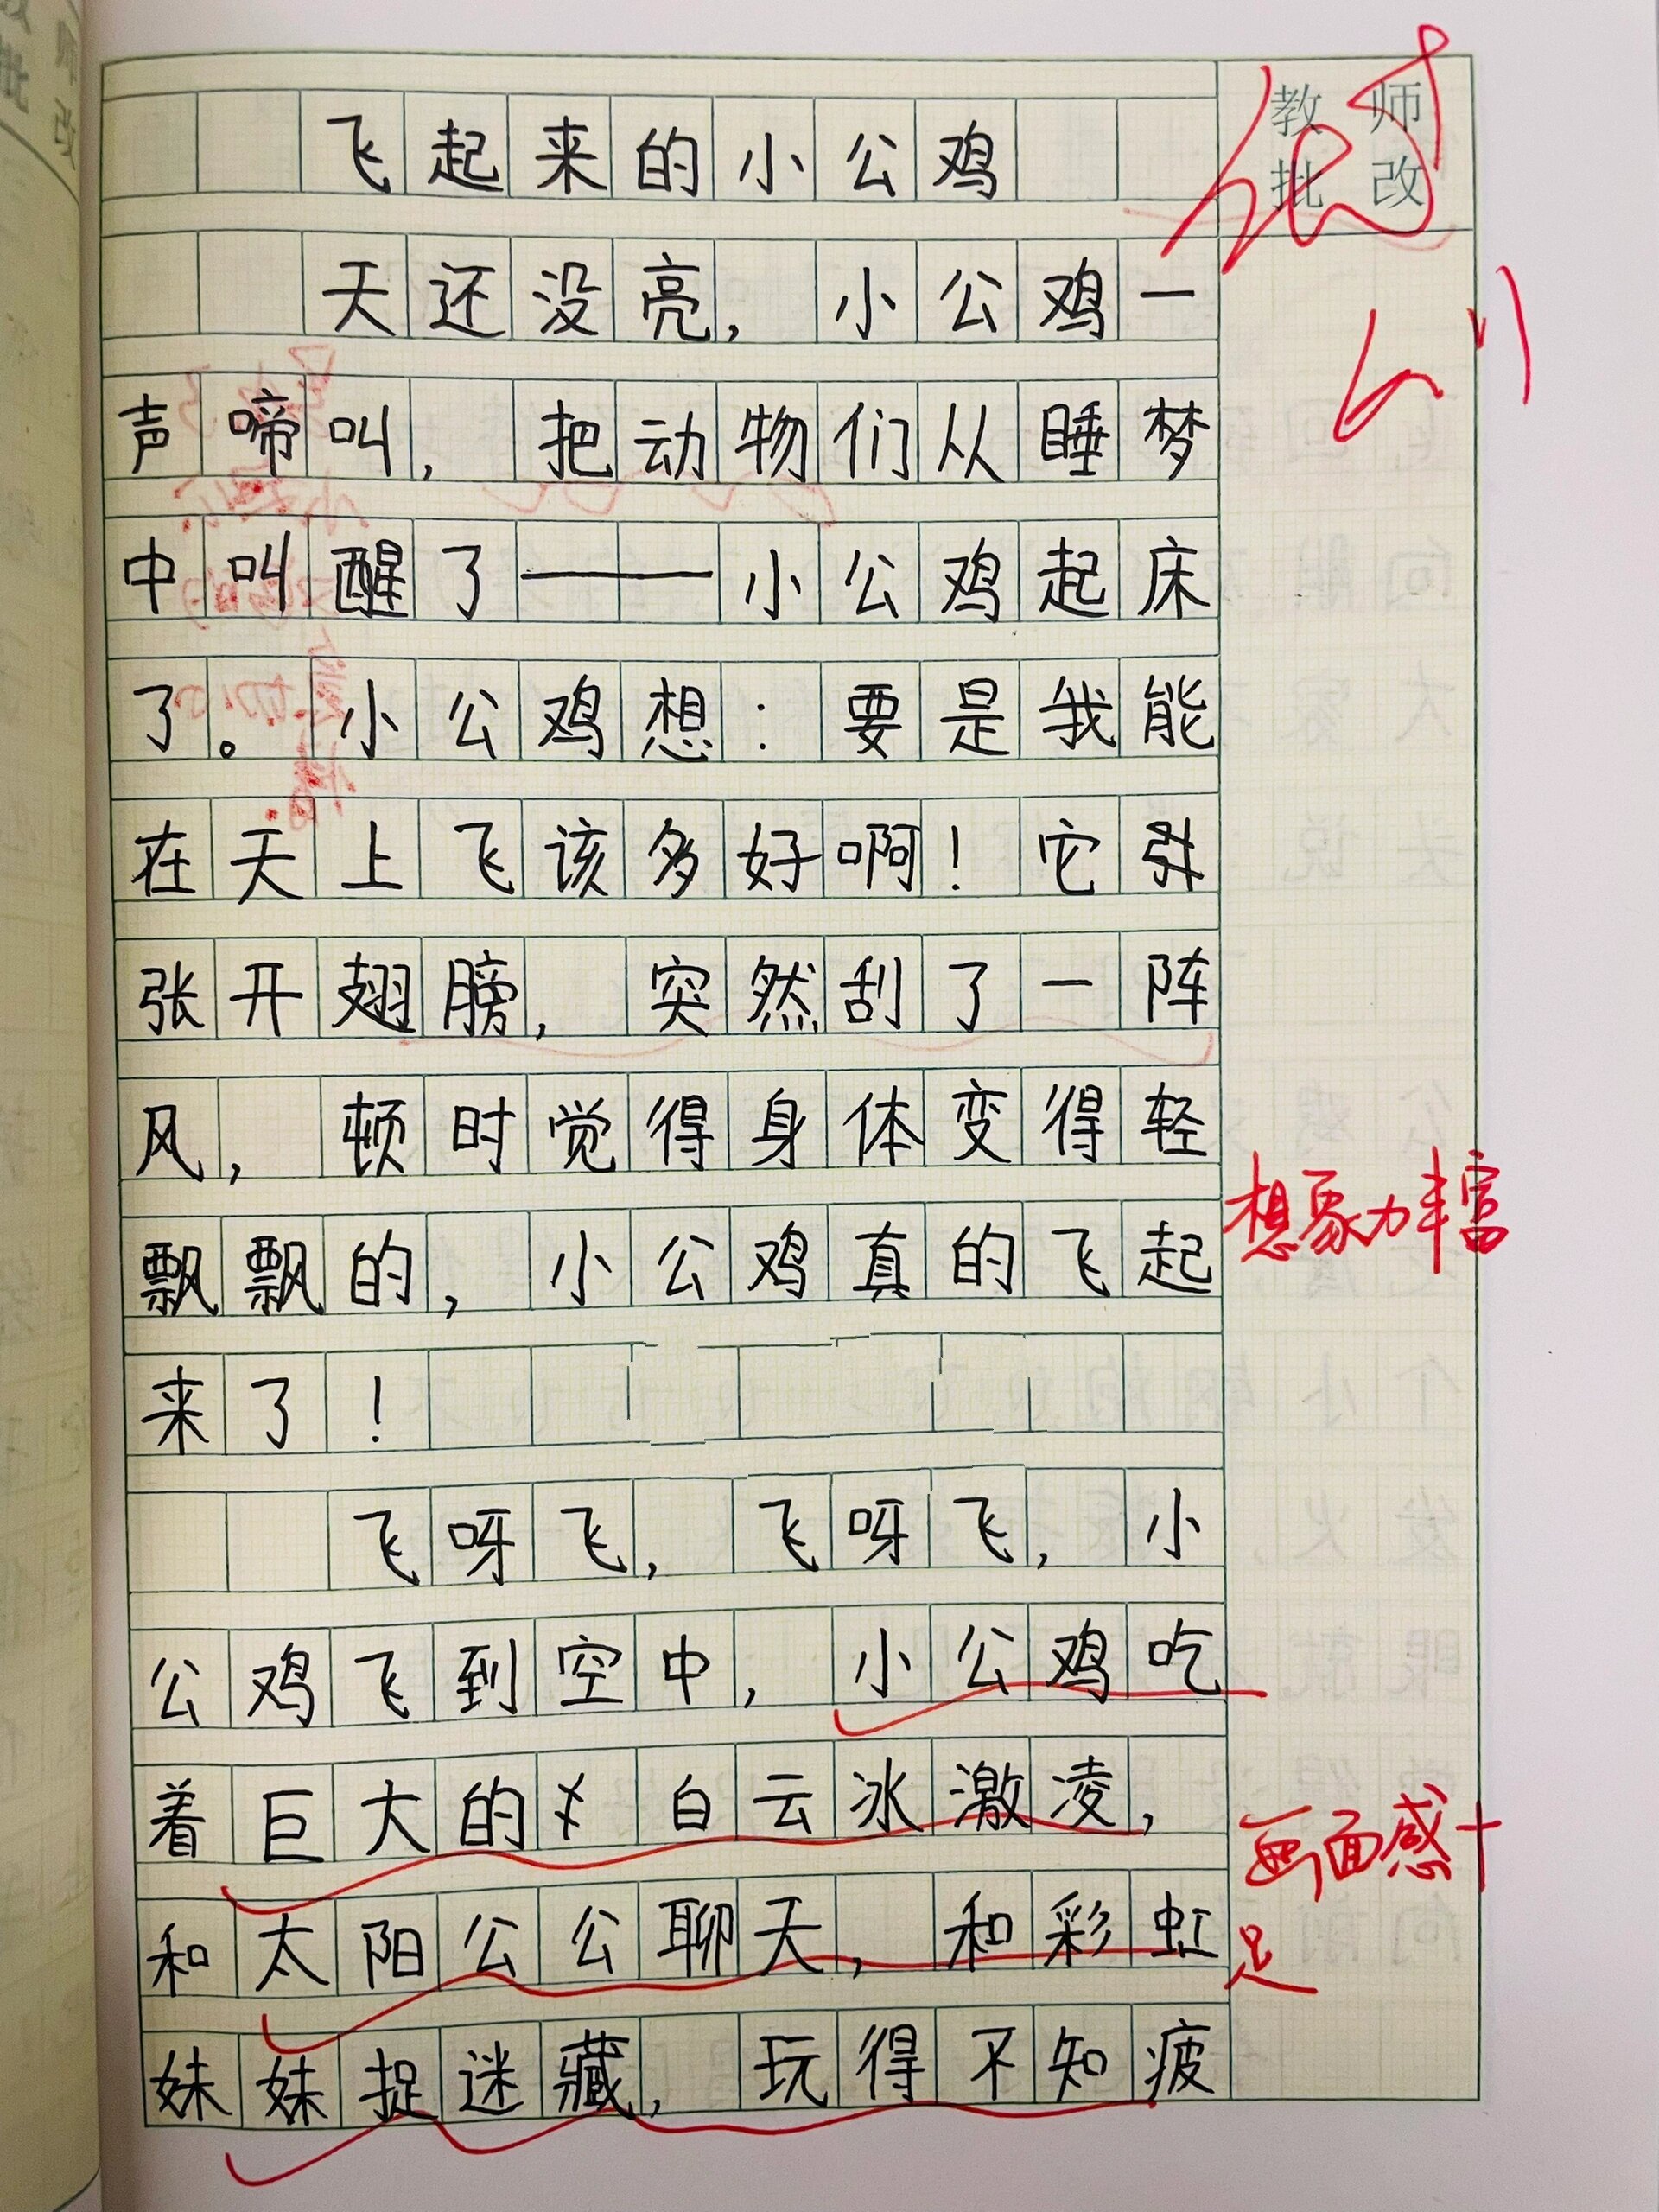 飞起来的小公鸡
教师
批改
天还没亮，小公鸡一
声啼叫，把动物们从睡梦
中叫醒了——小公鸡起床
了。小公鸡想：要是我能
在天上飞该多好啊！它张
张开翅膀，突然刮了一阵
风，顿时觉得身体变得轻
飘飘的，小公鸡真的飞起
来了！
想象力丰富
飞呀飞，飞呀飞，小
公鸡飞到空中，小公鸡吃
着巨大的白云冰激凌，
和太阳公公聊天，和彩虹
妹妹捉迷藏，玩得不知疲
画面感十
足